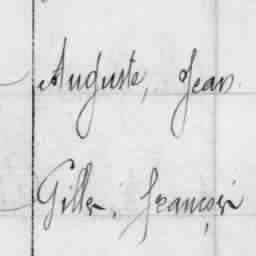 Auguste, Jean
Gilles, François